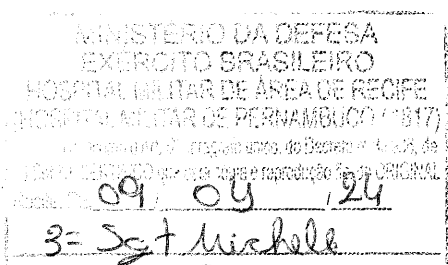 MINISTÉRIO DA DEFESA
EXÉRCITO BRASILEIRO
HOSPITAL MILITAR DE ÁREA DE RECIFE
(HOSPITAL MILITAR DE PERNAMBUCO / 1817)
único, do Decreto
que esta cópia é reprodução do ORIGINAL
09 04 , 24
3= Sgt Michele